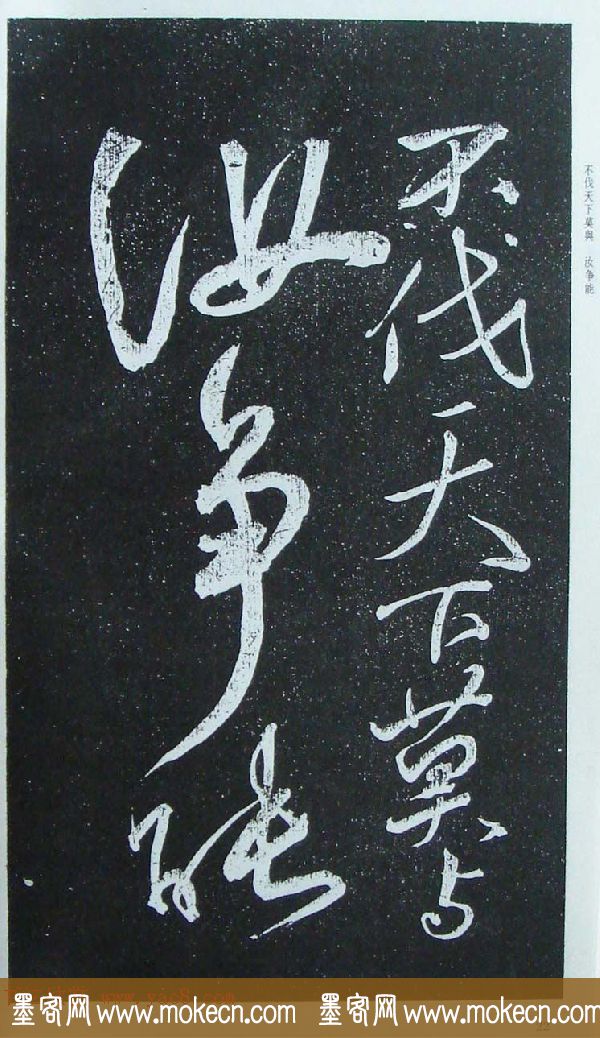 不伐天下莫与
汝争能
不伐天下莫與 汝争能
墨客网 www.mokecn.com 墨客网 www.mokecn.com